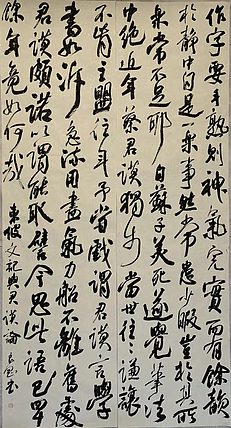 作字要手熟則神氣完實而有餘韻
於靜中自是一樂事然常患少暇豈於其所
樂常不足耶 自蘇子美死遂覺筆法
中絕近年蔡君謨獨步當世往往謙讓
不肯主盟往年予嘗戲謂君謨言學
書如泝急流用盡氣力船不離舊處
君謨頗諾以謂能取譬今思此語已四十
餘年竟如何哉 東坡文記與君謨論